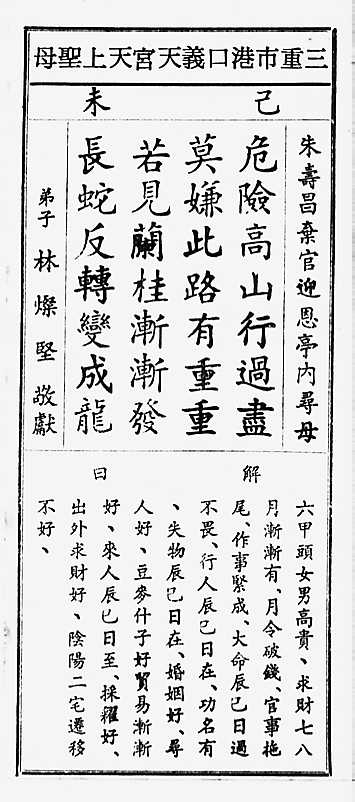 三重市港口義天宮天上聖母
己未
朱壽昌棄官迎恩亭內尋母
危險高山行過盡
莫嫌此路有重重
若見蘭桂漸漸發
長蛇反轉變成龍
弟子 林燦堅 敬獻
解曰
六甲頭女男高貴、求財七八
月漸漸有、月令破錢、官事拖
尾、作事緊成、大命辰巳日過
不畏、行人辰巳日在、功名有
、失物辰巳日在、婚姻好、尋
人好、豆麥什子好貿易漸漸
好、來人辰巳日至、採糴好、
出外求財好、陰陽二宅遷移
不好、